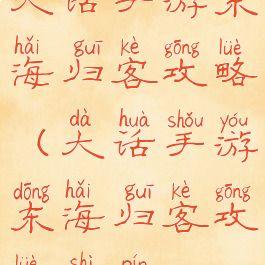 大话手游东
hǎi guī kè gōng lüè
海归客攻略
dà huà shǒu yóu
（大话手游
dōng hǎi guī kè gōng
东海归客攻
lüè shì pín